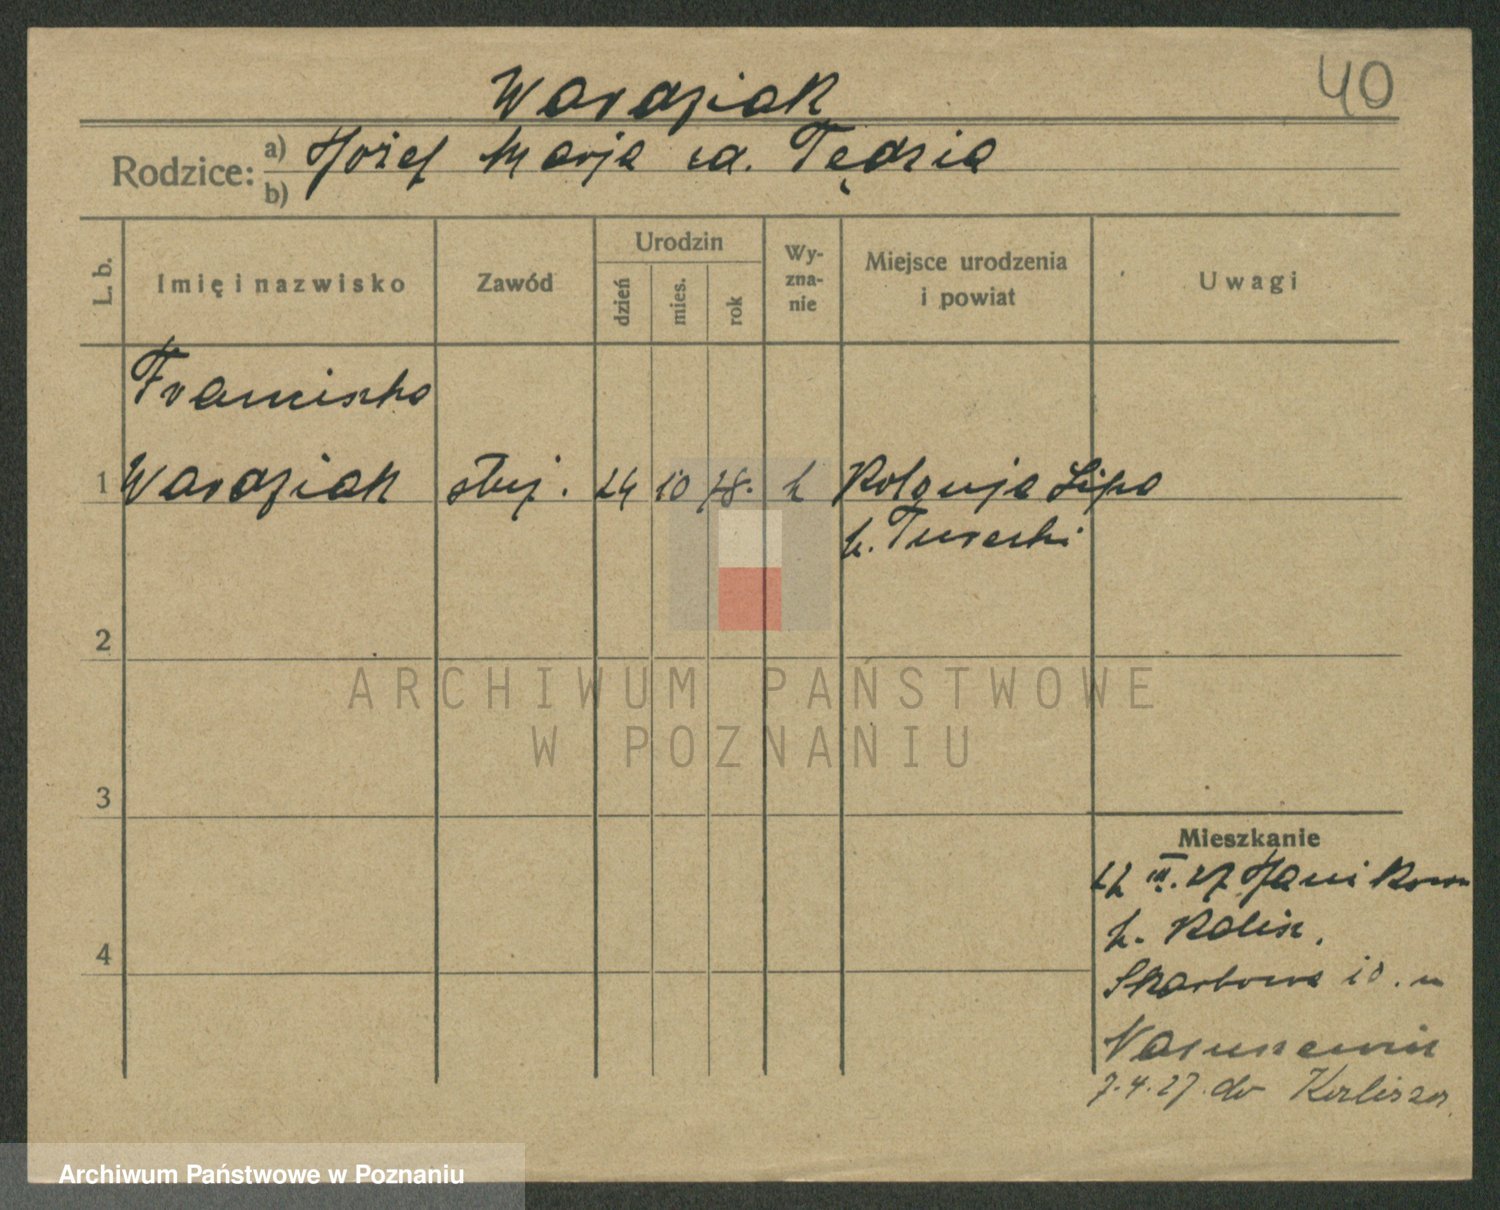 40
Wardziak
Rodzice: a) Józef Marja zd. Tędzia
b)
L. b.
Imię i nazwisko
Zawód
Urodzin
dzień
mies.
rok
Wy-
zna-
nie
Miejsce urodzenia
i powiat
Uwagi
Franciszka
1 Wardziak służ. 24 10 78. k Kolonja Lipa
k. Turecki
2
3
4
Mieszkanie
22 III. 27
k. Kalisz.
Skarbowa 10. m
7.4.27. do Kalisza.
ARCHIWUM PAŃSTWOWE
W POZNANIU
Archiwum Państwowe w Poznaniu